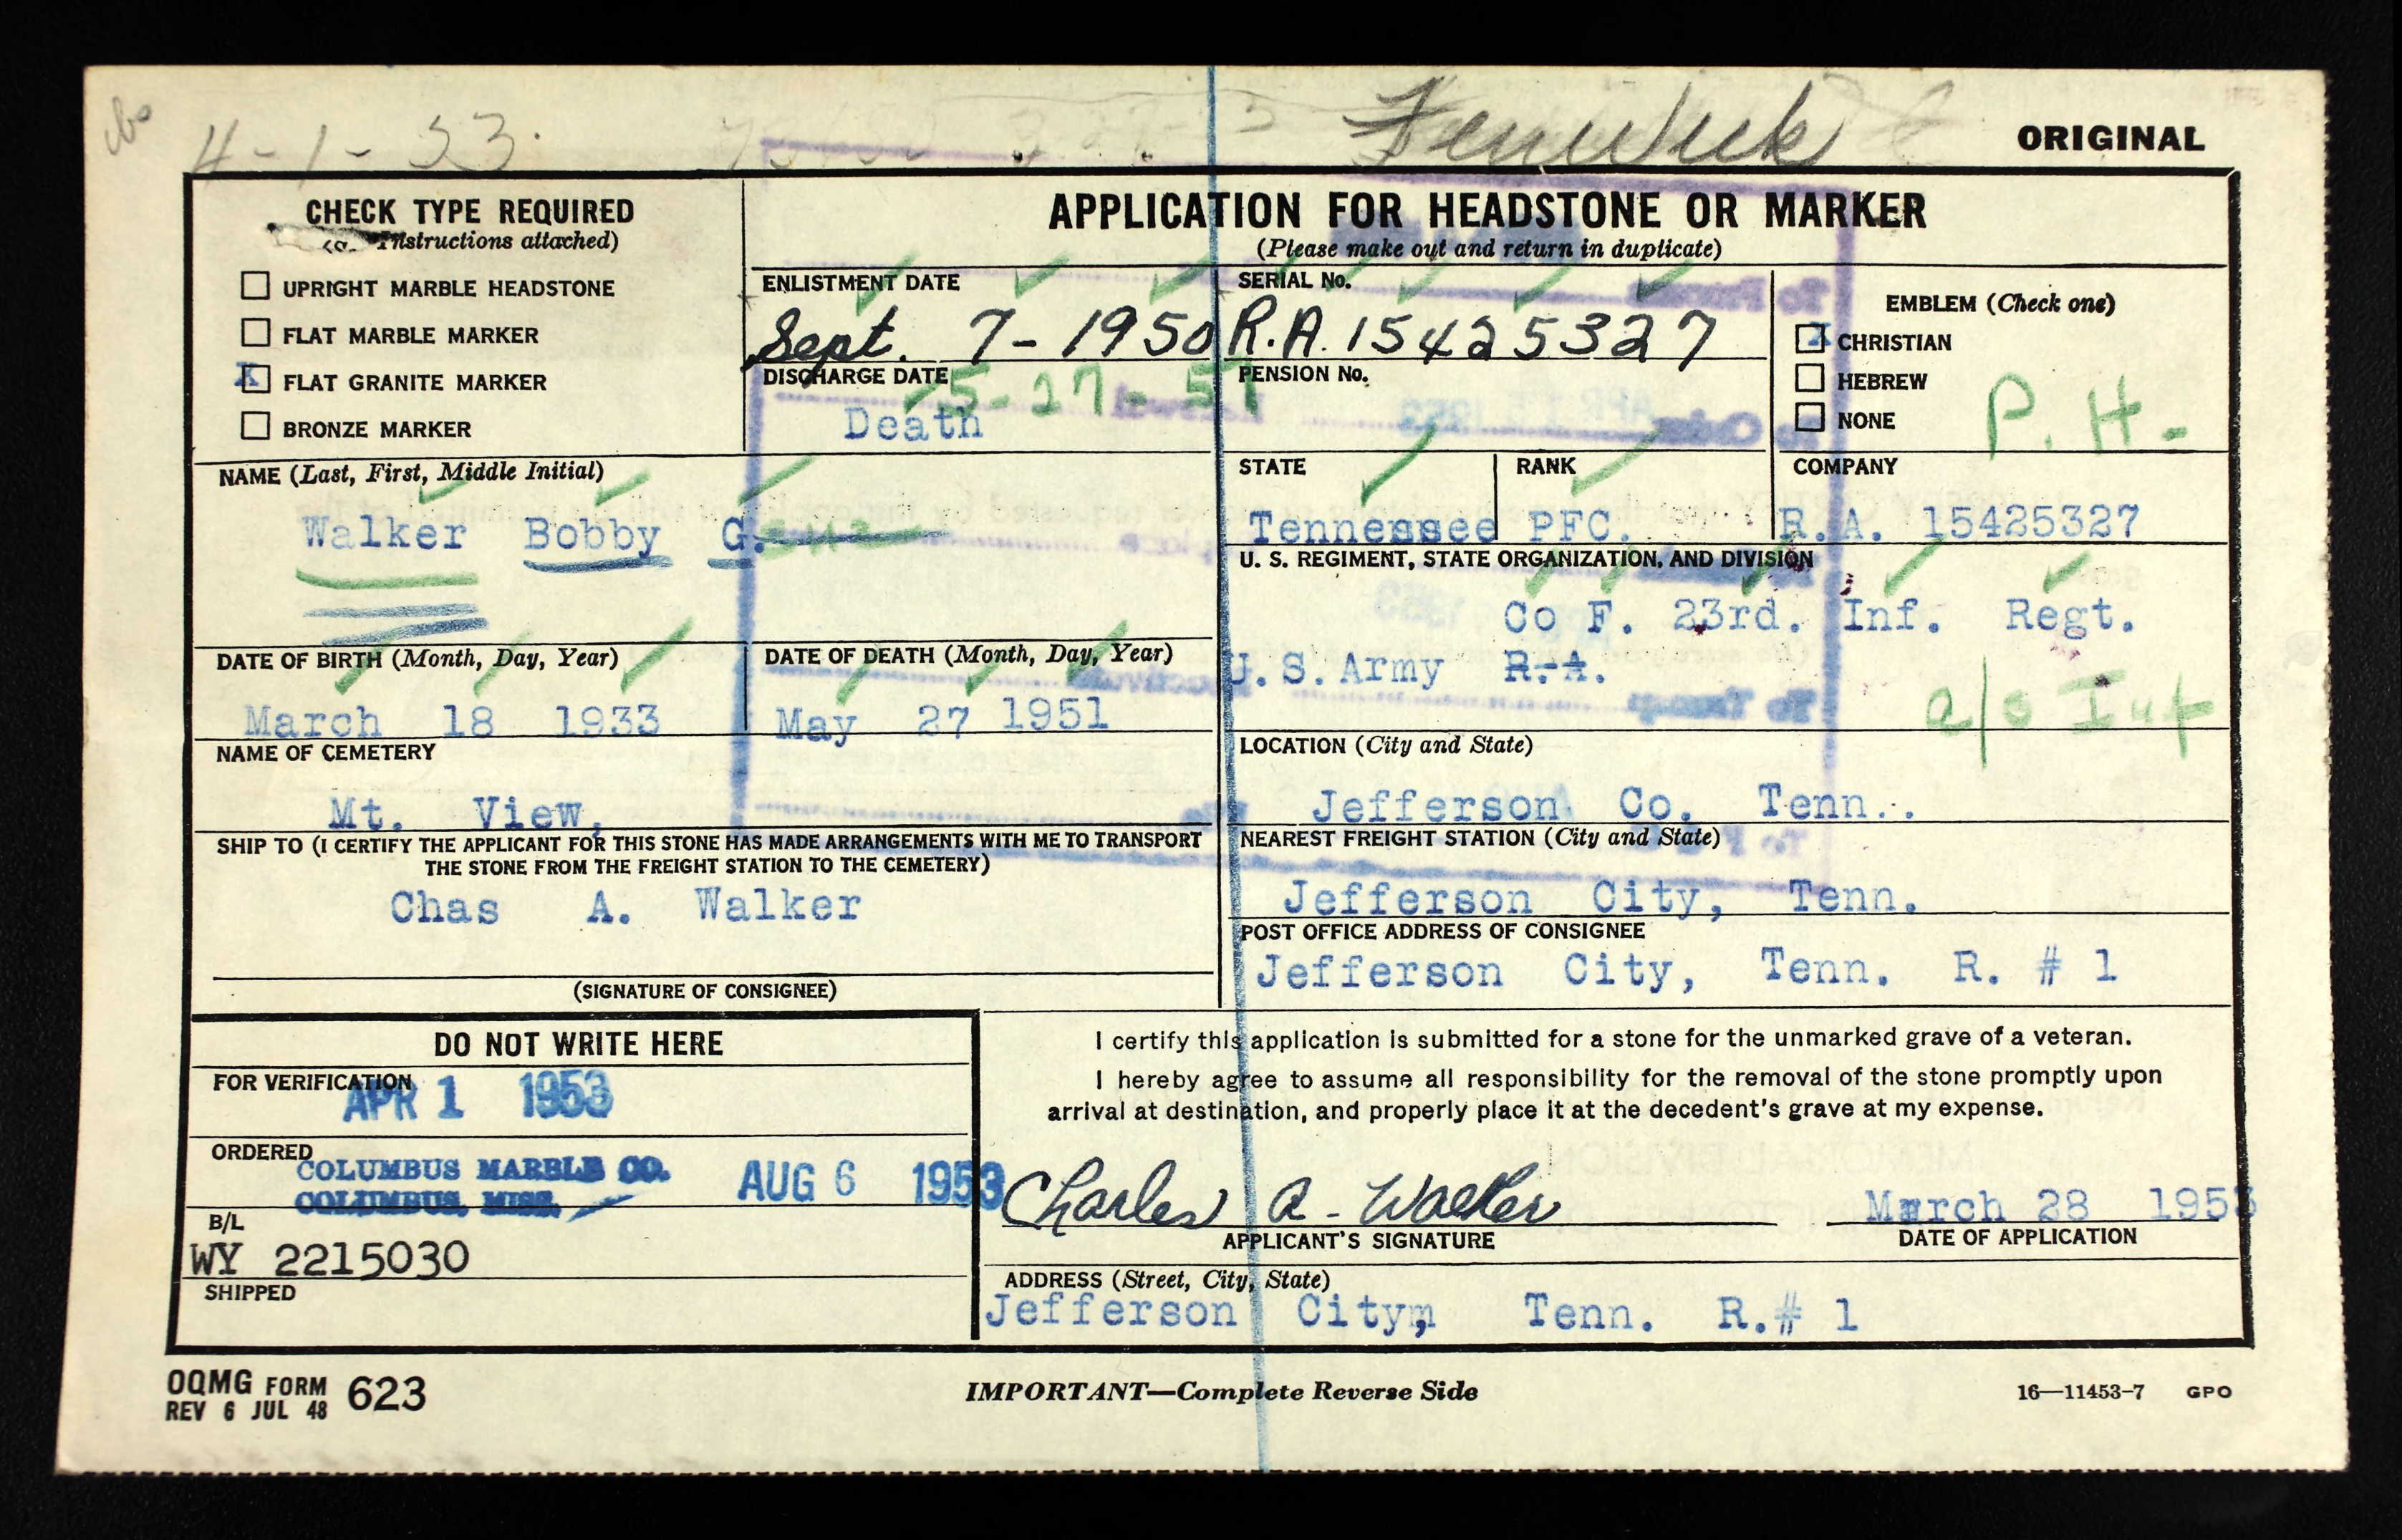 4-1-53.
Fenwick
ORIGINAL
CHECK TYPE REQUIRED
Instructions attached)
UPRIGHT MARBLE HEADSTONE
FLAT MARBLE MARKER
X FLAT GRANITE MARKER
BRONZE MARKER
APPLICATION FOR HEADSTONE OR MARKER
(Please make out and return in duplicate)
ENLISTMENT DATE
Sept. 7-1950
DISCHARGE DATE
5-27-51
Death
SERIAL No.
R.A. 15425327
PENSION No.
EMBLEM (Check one)
X CHRISTIAN
HEBREW
NONE
P. H.
NAME (Last, First, Middle Initial)
Walker Bobby G.
STATE
Tennessee
RANK
PFC.
COMPANY
R.A. 15425327
U. S. REGIMENT, STATE ORGANIZATION, AND DIVISION
Co F. 23rd. Inf. Regt.
U.S. Army R.A.
a/s Inf
DATE OF BIRTH (Month, Day, Year)
March 18 1933
DATE OF DEATH (Month, Day, Year)
May 27 1951
NAME OF CEMETERY
Mt. View,
LOCATION (City and State)
Jefferson Co. Tenn..
SHIP TO (I CERTIFY THE APPLICANT FOR THIS STONE HAS MADE ARRANGEMENTS WITH ME TO TRANSPORT
THE STONE FROM THE FREIGHT STATION TO THE CEMETERY)
Chas A. Walker
(SIGNATURE OF CONSIGNEE)
NEAREST FREIGHT STATION (City and State)
Jefferson City, Tenn.
POST OFFICE ADDRESS OF CONSIGNEE
Jefferson City, Tenn. R. # 1
DO NOT WRITE HERE
FOR VERIFICATION
APR 1 1953
ORDERED
COLUMBUS MARBLE CO.
COLUMBUS, MISS.
AUG 6 1953
B/L
WY 2215030
SHIPPED
I certify this application is submitted for a stone for the unmarked grave of a veteran.
I hereby agree to assume all responsibility for the removal of the stone promptly upon
arrival at destination, and properly place it at the decedent's grave at my expense.
Charles A. Walker
APPLICANT'S SIGNATURE
March 28 1953
DATE OF APPLICATION
ADDRESS (Street, City, State)
Jefferson City, Tenn. R.# 1
OQMG FORM 623
REV 6 JUL 48
IMPORTANT—Complete Reverse Side
16—11453-7 GPO